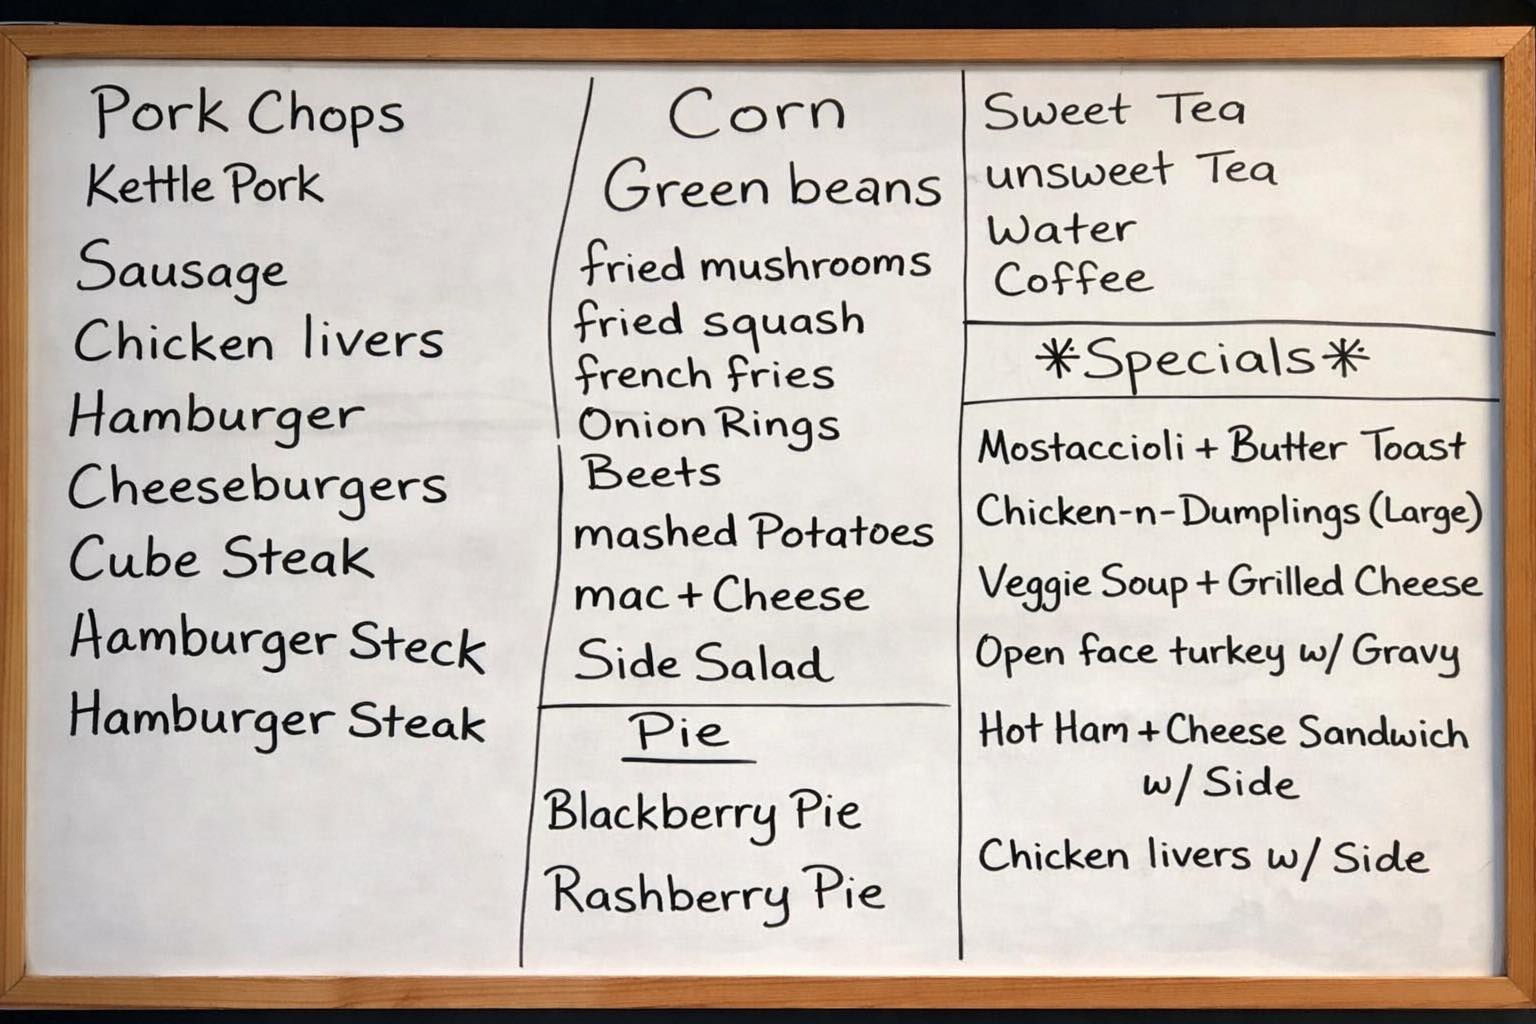 Pork Chops
Kettle Pork
Sausage
Chicken livers
Hamburger
Cheeseburgers
Cube Steak
Hamburger Steck
Hamburger Steak
Corn
Green beans
fried mushrooms
fried squash
french fries
Onion Rings
Beets
mashed Potatoes
mac + Cheese
Side Salad
Pie
Blackberry Pie
Rashberry Pie
Sweet Tea
unsweet Tea
Water
Coffee
*Specials*
Mostaccioli + Butter Toast
Chicken-n-Dumplings (Large)
Veggie Soup + Grilled Cheese
Open face turkey w/ Gravy
Hot Ham + Cheese Sandwich
w/ Side
Chicken livers w/ Side